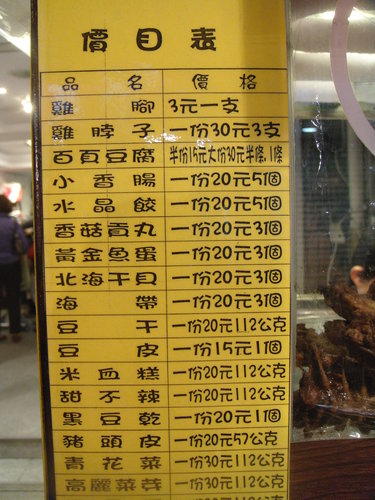 價目表
品名 價格
雞腳 3元一支
雞脖子 一份30元3支
百頁豆腐 半份15元大份30元半條.1條
小香腸 一份20元5個
水晶餃 一份20元5個
香菇貢丸 一份20元3個
黃金魚蛋 一份20元3個
北海干貝 一份20元3個
海帶 一份20元3個
豆干 一份20元112公克
豆皮 一份15元1個
米血糕 一份20元112公克
甜不辣 一份20元112公克
黑豆乾 一份20元1個
豬頭皮 一份20元57公克
青花菜 一份30元112公克
高麗菜芽 一份30元112公克